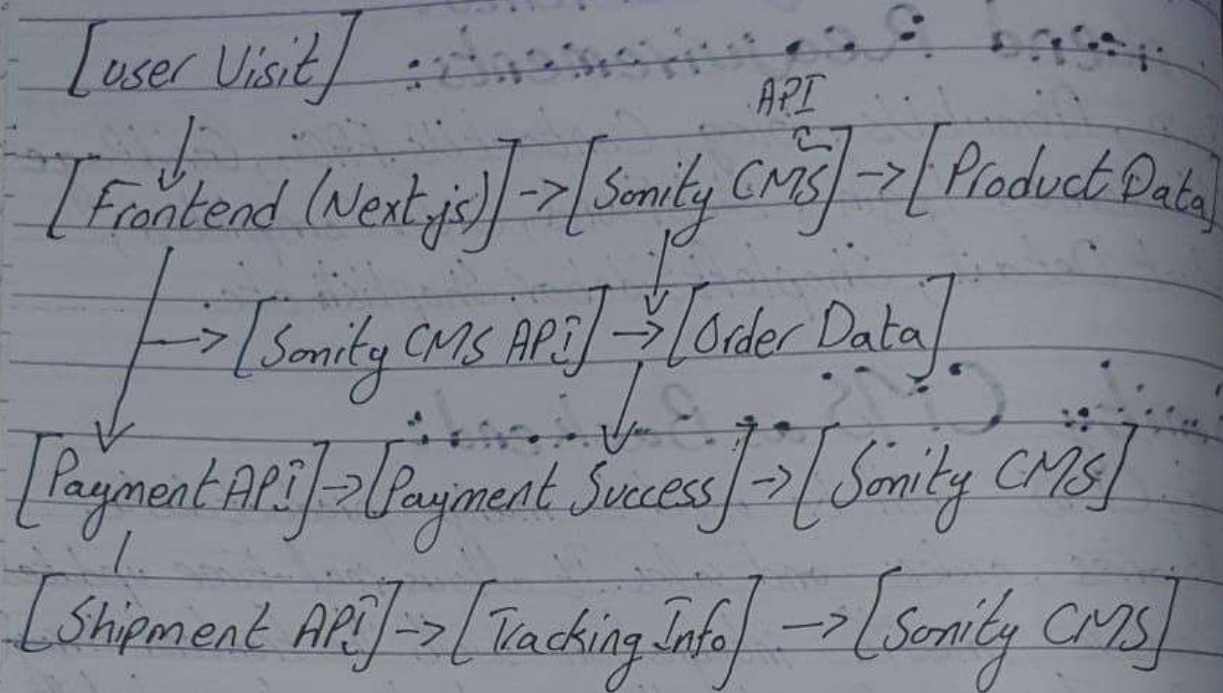 [user Visit]
API
[Frontend (Next.js)] -> [Sonity CMS] -> [Product Data]
-> [Sonity CMS API] -> [Order Data]
[Payment API] -> [Payment Success] -> [Sonity CMS]
[Shipment API] -> [Tracking Info] -> [Sonity CMS]